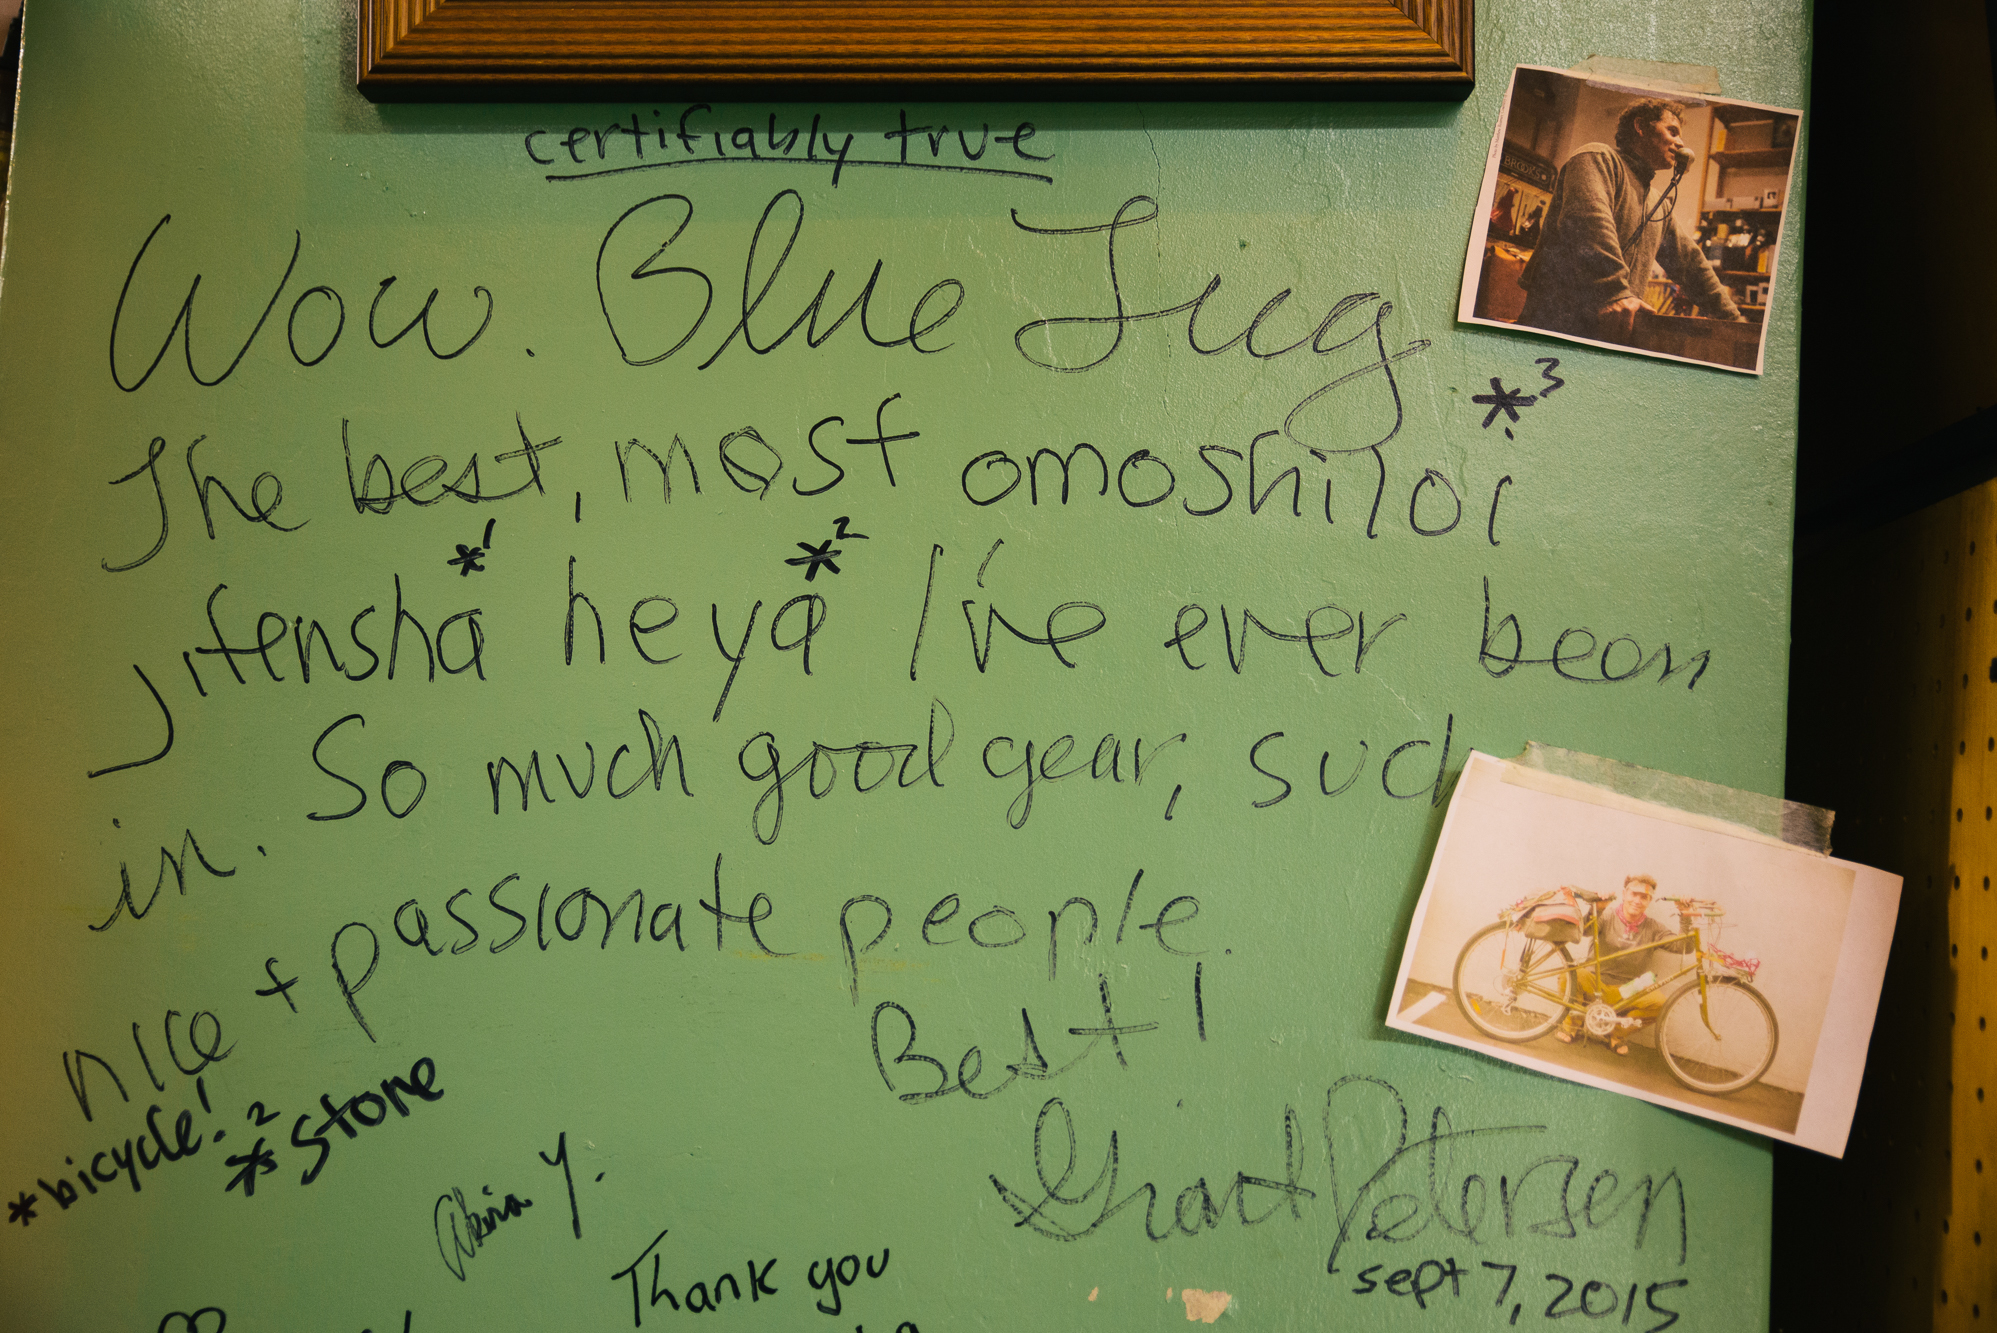 certifiably true
Wow. Blue Jug
The best, most omoshiloi *3
jitensha *1 heya *2 I've ever been
in. So much good gear, such
nice + passionate people.
Best!
*bicycle! 2
* store
Akira Y.
Grant Petersen
sept 7, 2015
Thank you
BROOKS